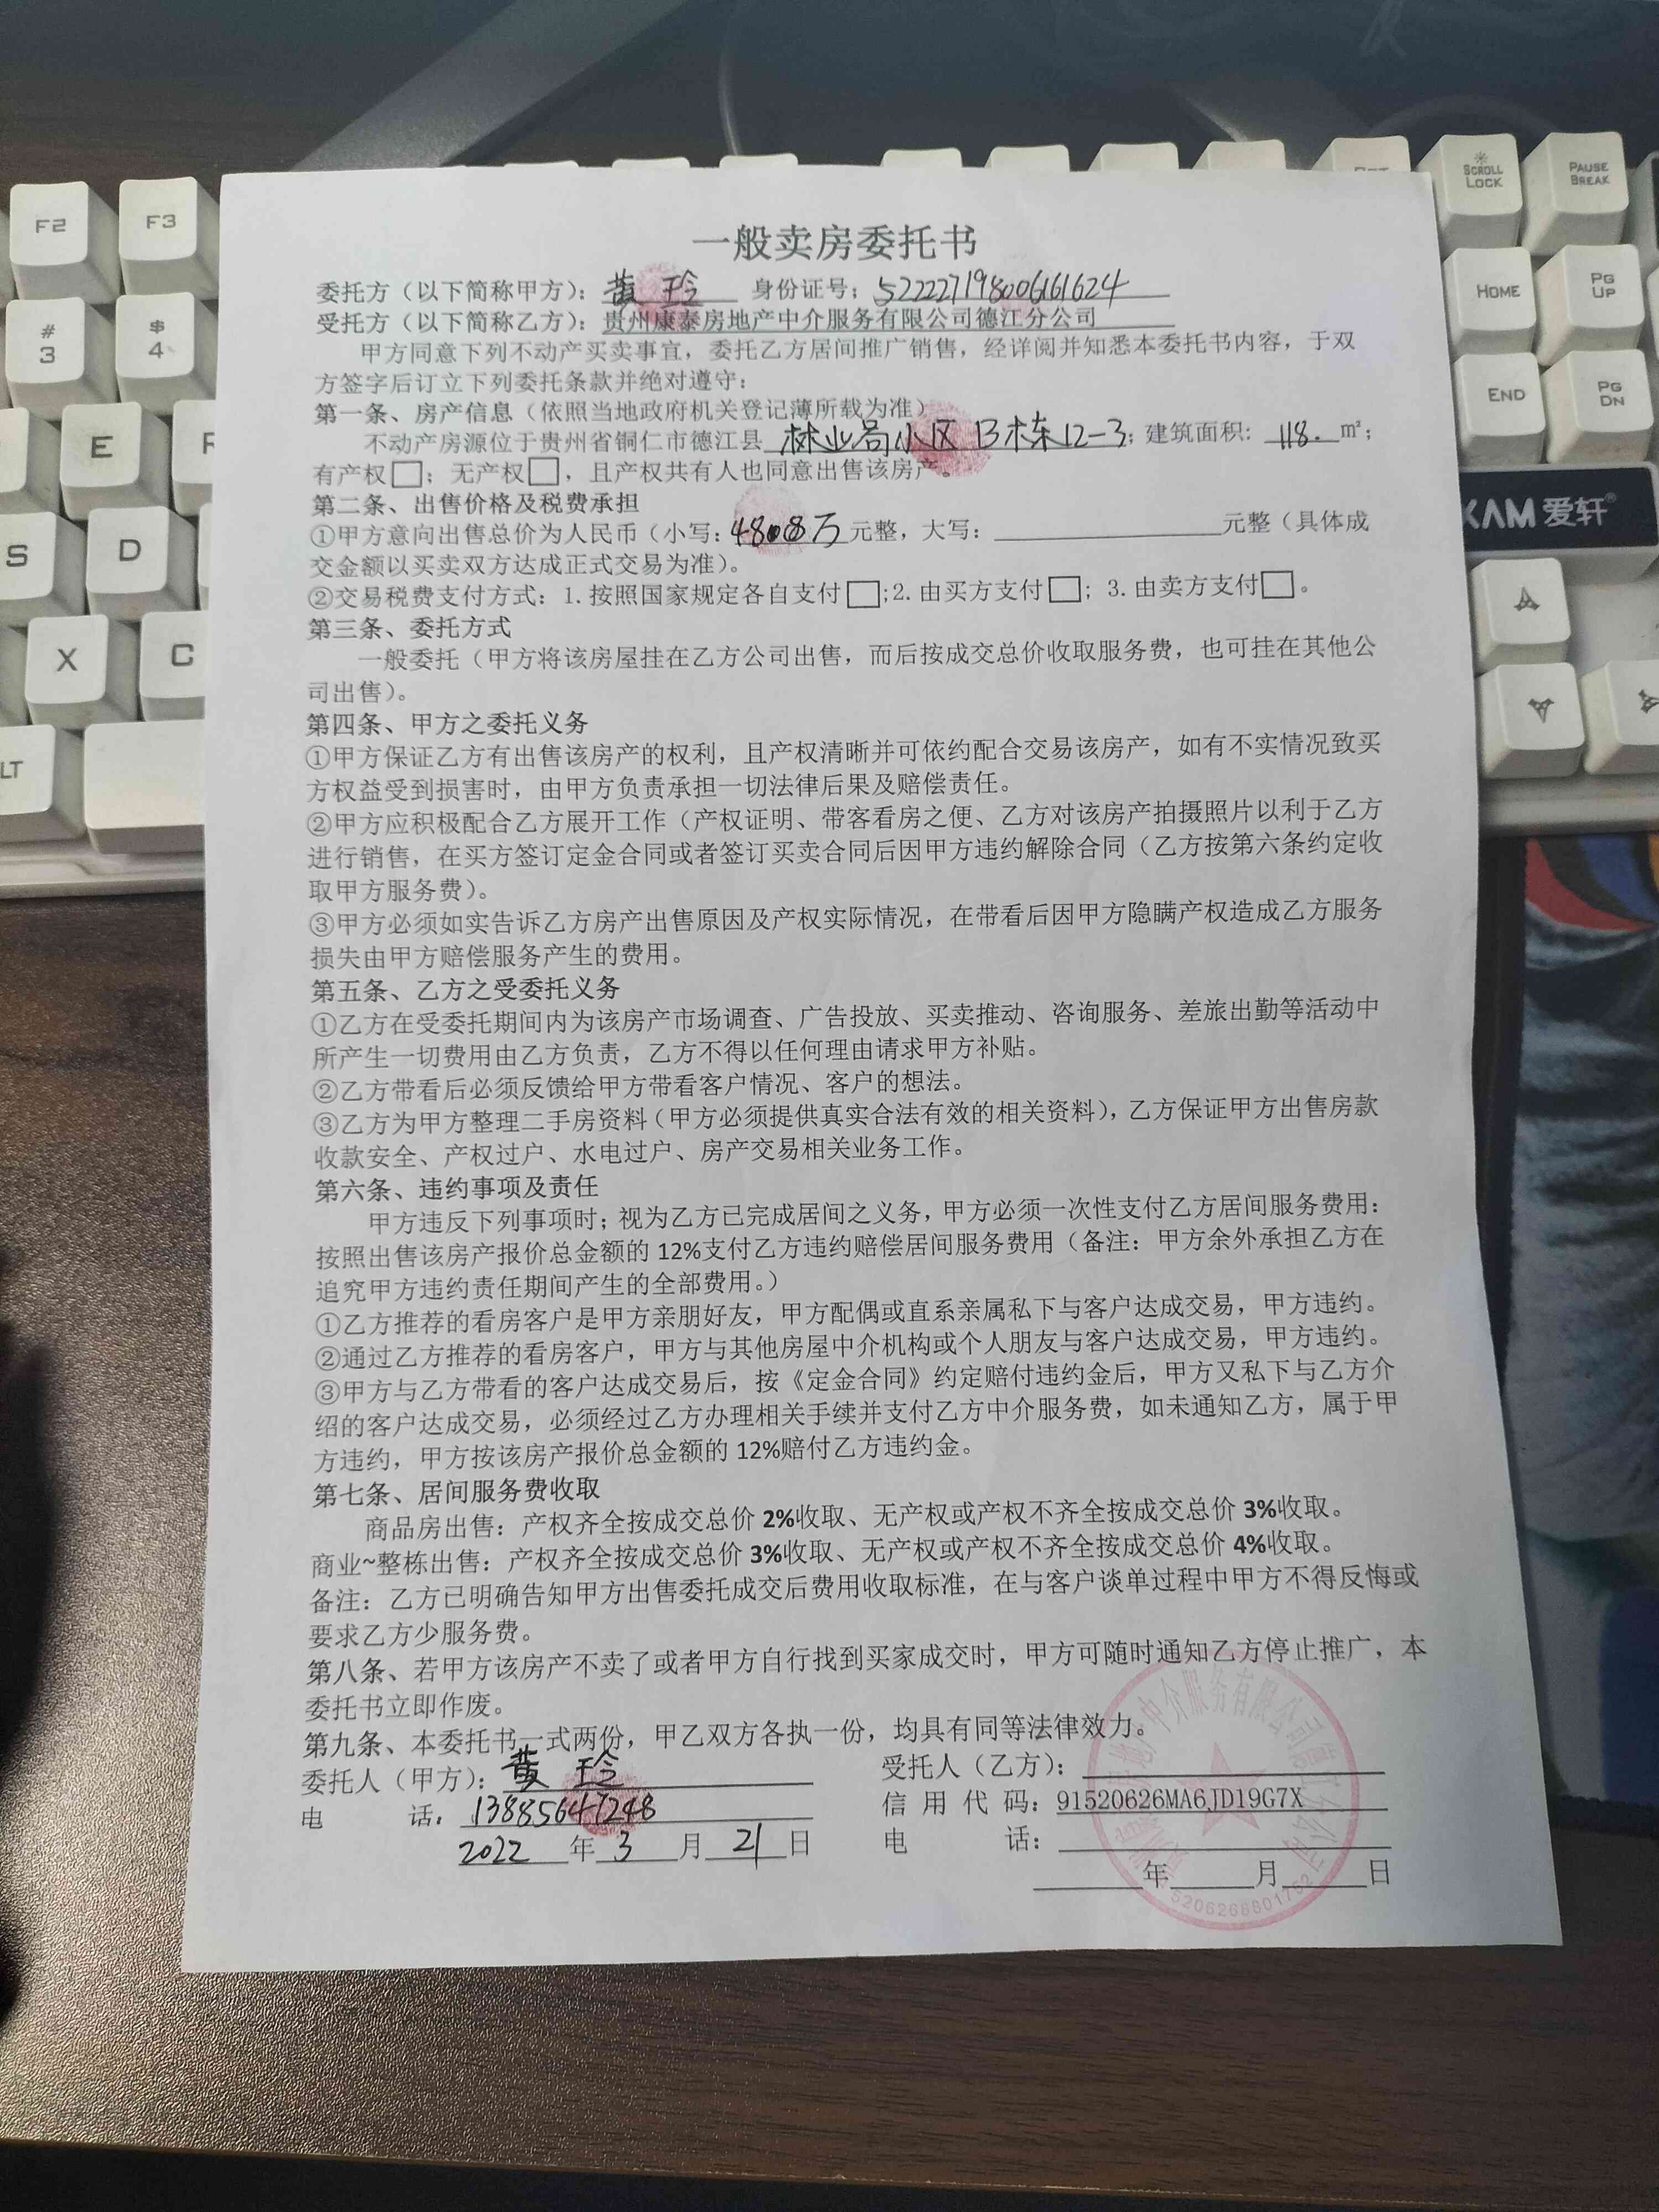 F2
F3
SCROLL LOCK
PAUSE BREAK
# 3
$ 4
HOME
PG UP
END
PG DN
E
S
D
X
C
LT
XAM 爱轩®
一般卖房委托书
委托方（以下简称甲方）：黄玲 身份证号：522227198006161624
受托方（以下简称乙方）：贵州康泰房地产中介服务有限公司德江分公司
甲方同意下列不动产买卖事宜，委托乙方居间推广销售，经详阅并知悉本委托书内容，于双
方签字后订立下列委托条款并绝对遵守：
第一条、房产信息（依照当地政府机关登记薄所载为准）
不动产房源位于贵州省铜仁市德江县林业局小区B栋12-3；建筑面积：118.m²；
有产权□；无产权□，且产权共有人也同意出售该房产。
第二条、出售价格及税费承担
①甲方意向出售总价为人民币（小写：万元整，大写：元整（具体成
交金额以买卖双方达成正式交易为准）。
②交易税费支付方式：1.按照国家规定各自支付□;2.由买方支付□；3.由卖方支付□。
第三条、委托方式
一般委托（甲方将该房屋挂在乙方公司出售，而后按成交总价收取服务费，也可挂在其他公
司出售）。
第四条、甲方之委托义务
①甲方保证乙方有出售该房产的权利，且产权清晰并可依约配合交易该房产，如有不实情况致买
方权益受到损害时，由甲方负责承担一切法律后果及赔偿责任。
②甲方应积极配合乙方展开工作（产权证明、带客看房之便、乙方对该房产拍摄照片以利于乙方
进行销售，在买方签订定金合同或者签订买卖合同后因甲方违约解除合同（乙方按第六条约定收
取甲方服务费）。
③甲方必须如实告诉乙方房产出售原因及产权实际情况，在带看后因甲方隐瞒产权造成乙方服务
损失由甲方赔偿服务产生的费用。
第五条、乙方之受委托义务
①乙方在受委托期间内为该房产市场调查、广告投放、买卖推动、咨询服务、差旅出勤等活动中
所产生一切费用由乙方负责，乙方不得以任何理由请求甲方补贴。
②乙方带看后必须反馈给甲方带看客户情况、客户的想法。
③乙方为甲方整理二手房资料（甲方必须提供真实合法有效的相关资料），乙方保证甲方出售房款
收款安全、产权过户、水电过户、房产交易相关业务工作。
第六条、违约事项及责任
甲方违反下列事项时；视为乙方已完成居间之义务，甲方必须一次性支付乙方居间服务费用：
按照出售该房产报价总金额的12%支付乙方违约赔偿居间服务费用（备注：甲方余外承担乙方在
追究甲方违约责任期间产生的全部费用。）
①乙方推荐的看房客户是甲方亲朋好友，甲方配偶或直系亲属私下与客户达成交易，甲方违约。
②通过乙方推荐的看房客户，甲方与其他房屋中介机构或个人朋友与客户达成交易，甲方违约。
③甲方与乙方带看的客户达成交易后，按《定金合同》约定赔付违约金后，甲方又私下与乙方介
绍的客户达成交易，必须经过乙方办理相关手续并支付乙方中介服务费，如未通知乙方，属于甲
方违约，甲方按该房产报价总金额的12%赔付乙方违约金。
第七条、居间服务费收取
商品房出售：产权齐全按成交总价2%收取、无产权或产权不齐全按成交总价3%收取。
商业~整栋出售：产权齐全按成交总价3%收取、无产权或产权不齐全按成交总价4%收取。
备注：乙方已明确告知甲方出售委托成交后费用收取标准，在与客户谈单过程中甲方不得反悔或
要求乙方少服务费。
第八条、若甲方该房产不卖了或者甲方自行找到买家成交时，甲方可随时通知乙方停止推广，本
委托书立即作废。
第九条、本委托书一式两份，甲乙双方各执一份，均具有同等法律效力。
委托人（甲方）：黄玲 受托人（乙方）：
电话：13885647248 信用代码：91520626MA6JD19G7X
2022年3月21日 电话：
年 月 日
中介服务有限公司